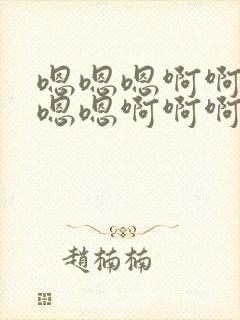 嗯嗯嗯啊啊
嗯嗯啊啊啊
趙楠楠